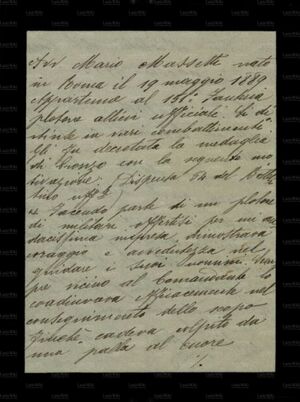 Avv Mario Massetti nato
in Roma il 19 maggio 1889
Appartenne al 151° Fanteria
plotone allievi ufficiali. Si di-
stinse in vari combattimenti
Gli fu decretata la medaglia
di bronzo con la seguente mo-
tivazione: (Dispensa 54 del Bollet-
tino uff.)
"Facendo parte di un plotone
di militari, offertisi per un'au-
dacissima impresa, dimostrava
coraggio e avvedutezza nel
guidare i suoi uomini. Sem-
pre vicino al Comandante lo
coadiuvava efficacemente nel
conseguimento dello scopo
finchè cadeva colpito da
una palla al cuore